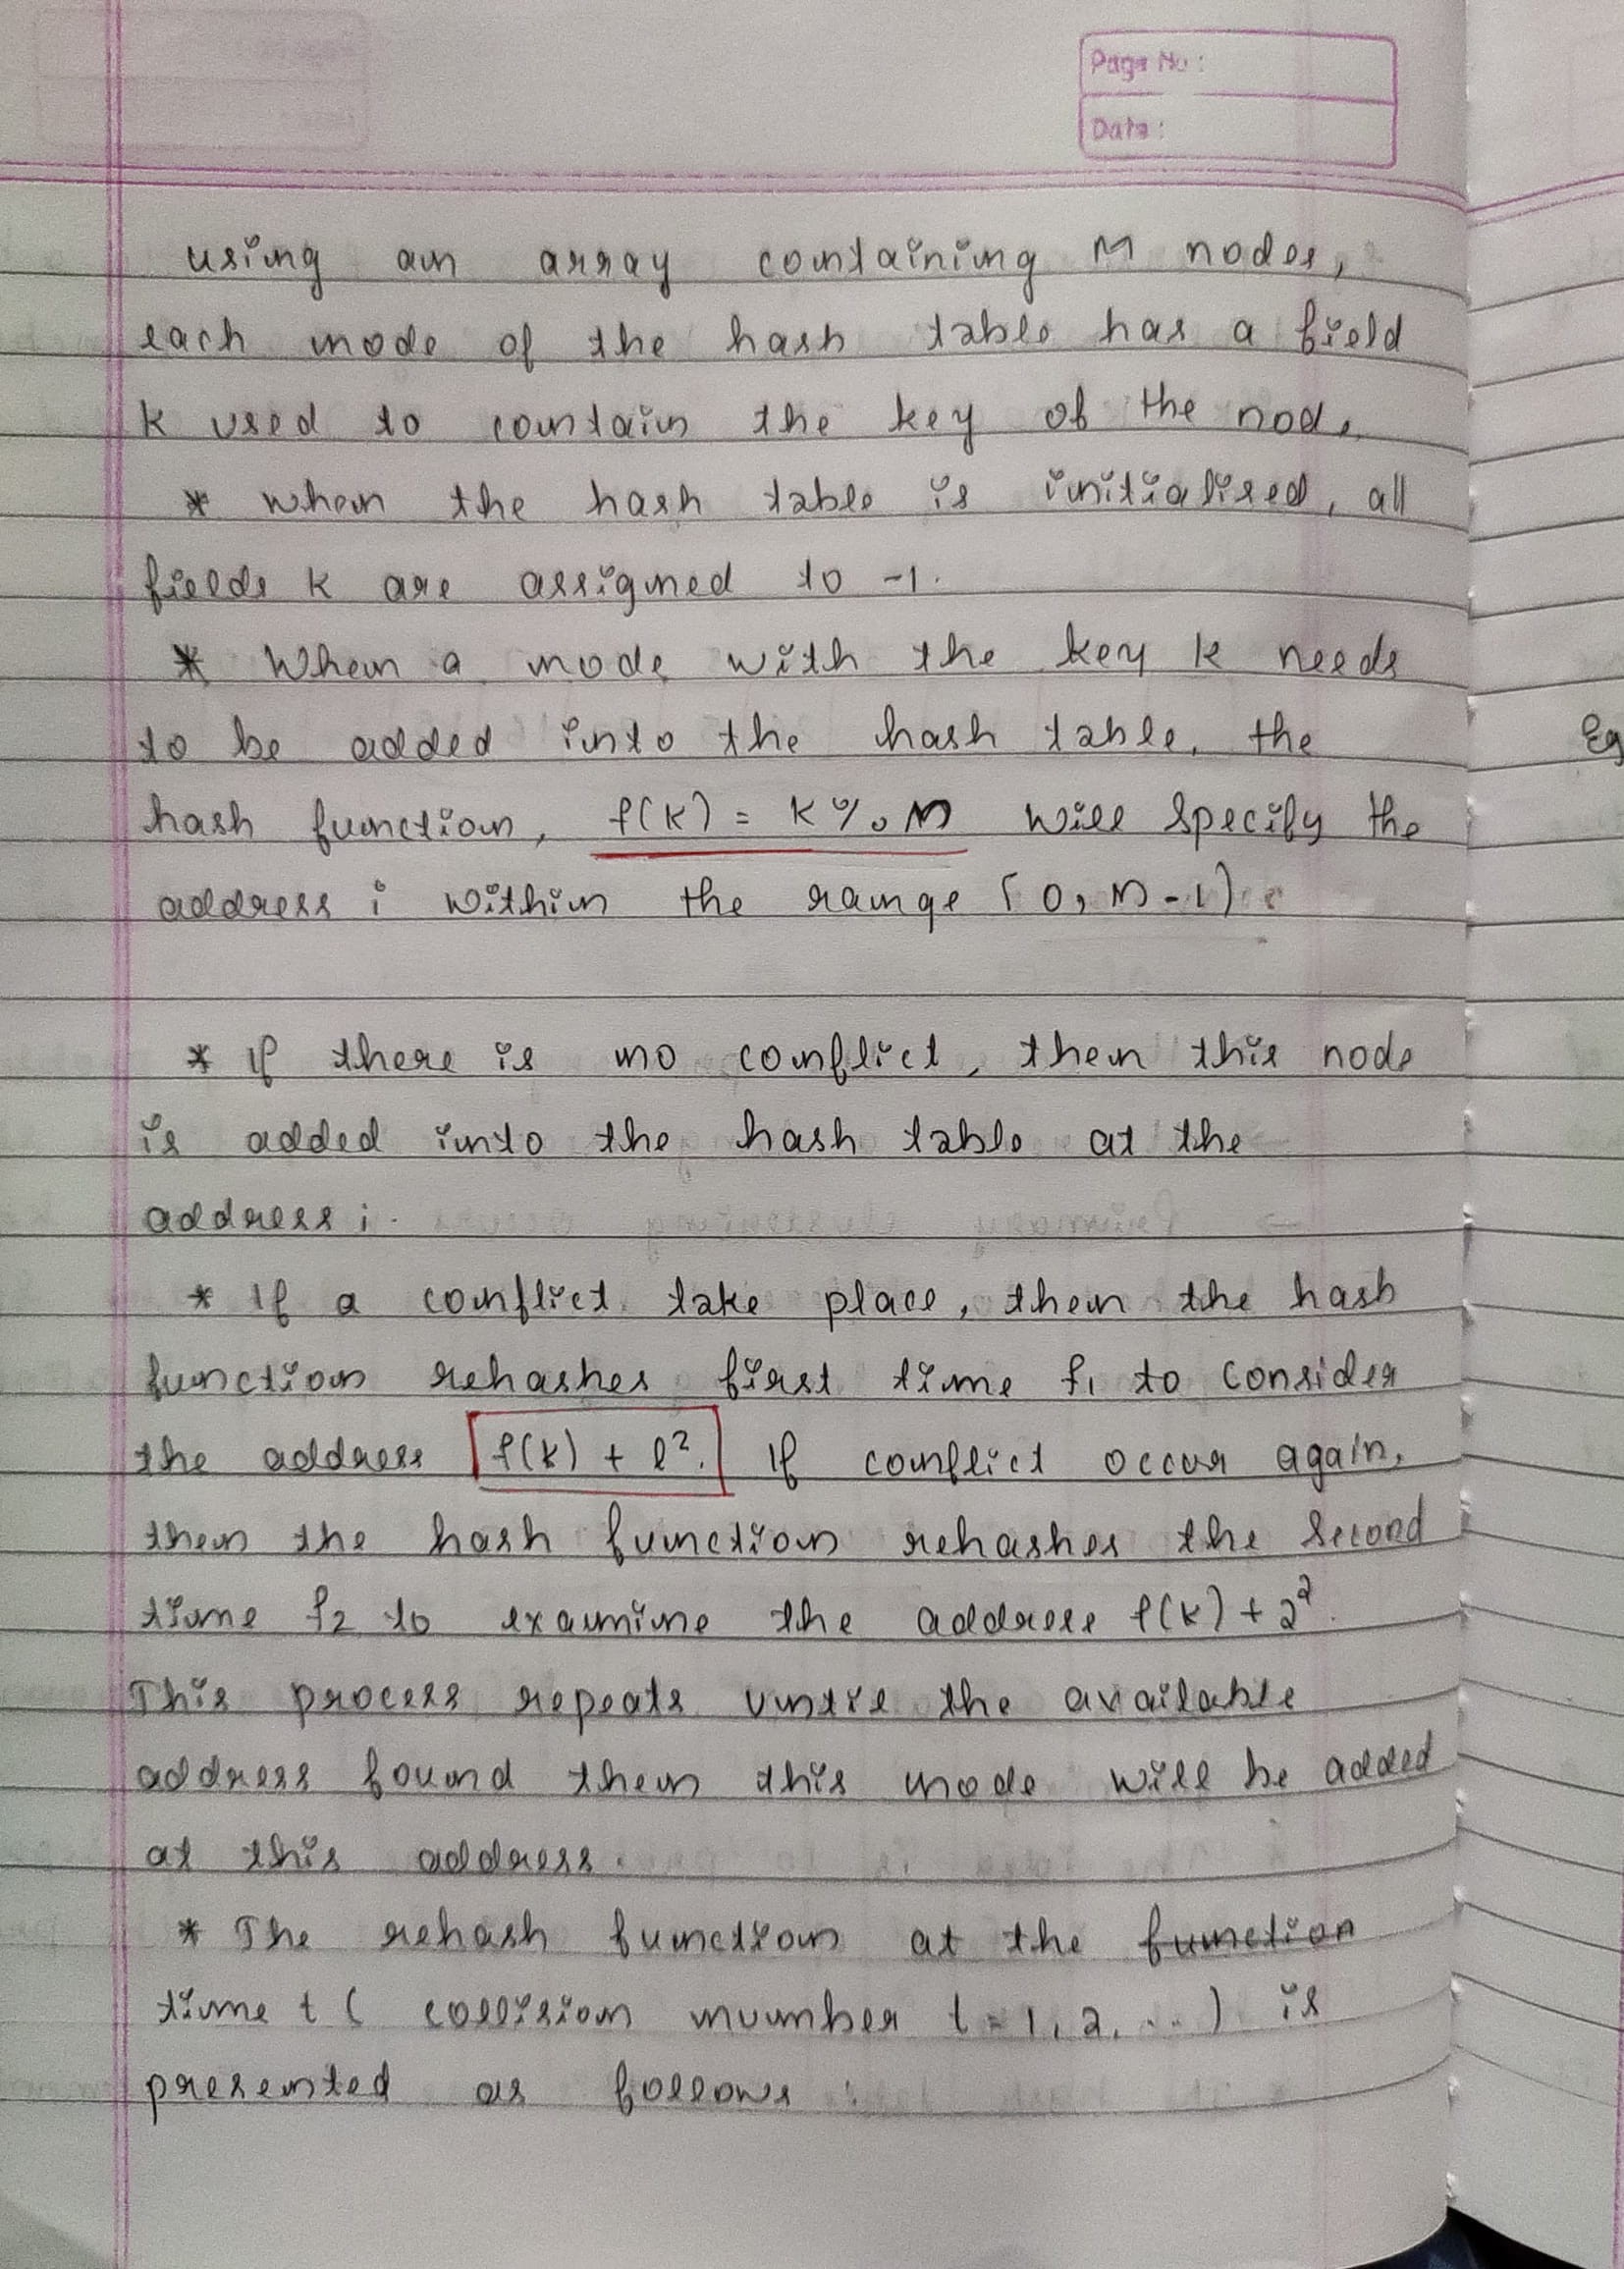 Page No:
Date:
using an array containing M nodes,
each node of the hash table has a field
k used to contain the key of the node.
* When the hash table is initialised, all
fields k are assigned to -1.
* When a node with the key k needs
to be added into the hash table, the
hash function, f(k) = k % M will specify the
address i within the range [0, M-1)
* If there is no conflict, then this node
is added into the hash table at the
address i.
* If a conflict take place, then the hash
function rehashes first time f1 to consider
the address f(k) + l². If conflict occur again,
then the hash function rehashes the second
time f2 to examine the address f(k) + 2².
This process repeats until the available
address found then this node will be added
at this address.
* The rehash function at the function
time t ( collision number t = 1, 2, ...) is
presented as follows :
Eg